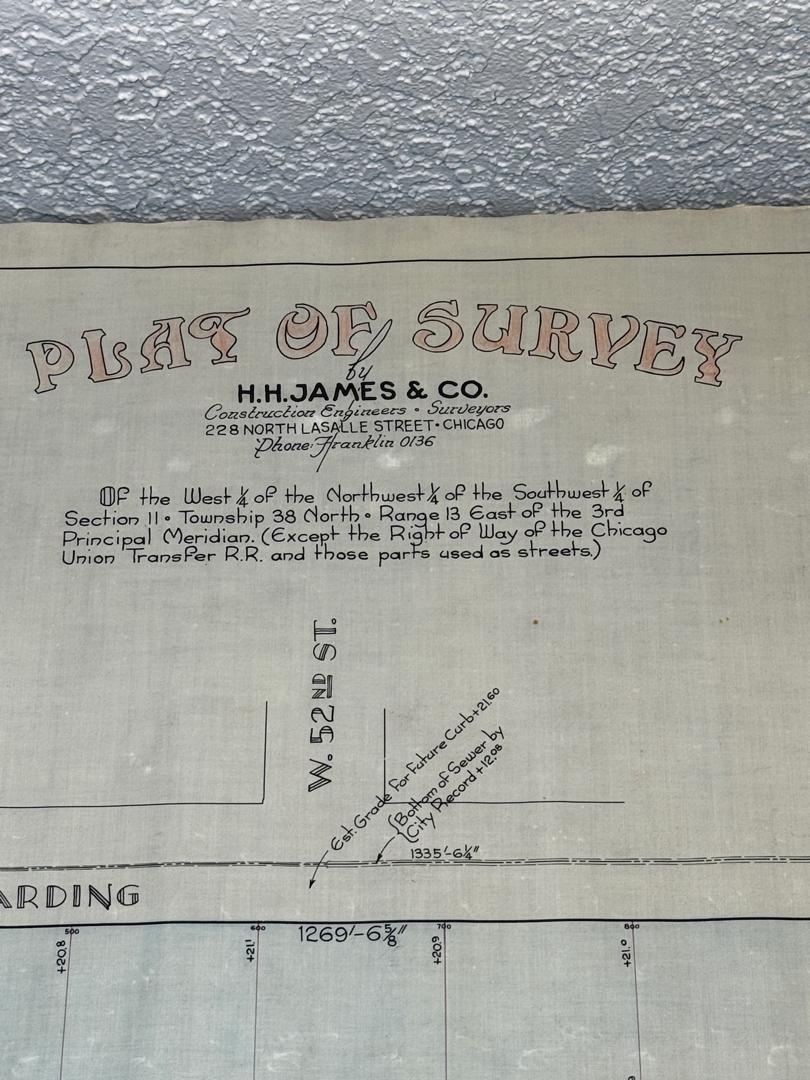 PLAT OF SURVEY
by
H.H.JAMES & CO.
Construction Engineers • Surveyors
228 NORTH LASALLE STREET • CHICAGO
Phone: Franklin 0136
Of the West ¼ of the Northwest ¼ of the Southwest ¼ of
Section 11 • Township 38 North • Range 13 East of the 3rd
Principal Meridian. (Except the Right of Way of the Chicago
Union Transfer R.R. and those parts used as streets.)
W. 52ND ST.
Est. Grade For Future Curb +21.60
Bottom of Sewer by
City Record +12.08
1335'-6¼"
ARDING
500
600
1269'-6⅝"
700
800
+20.8
+21.1
+20.9
+21.0